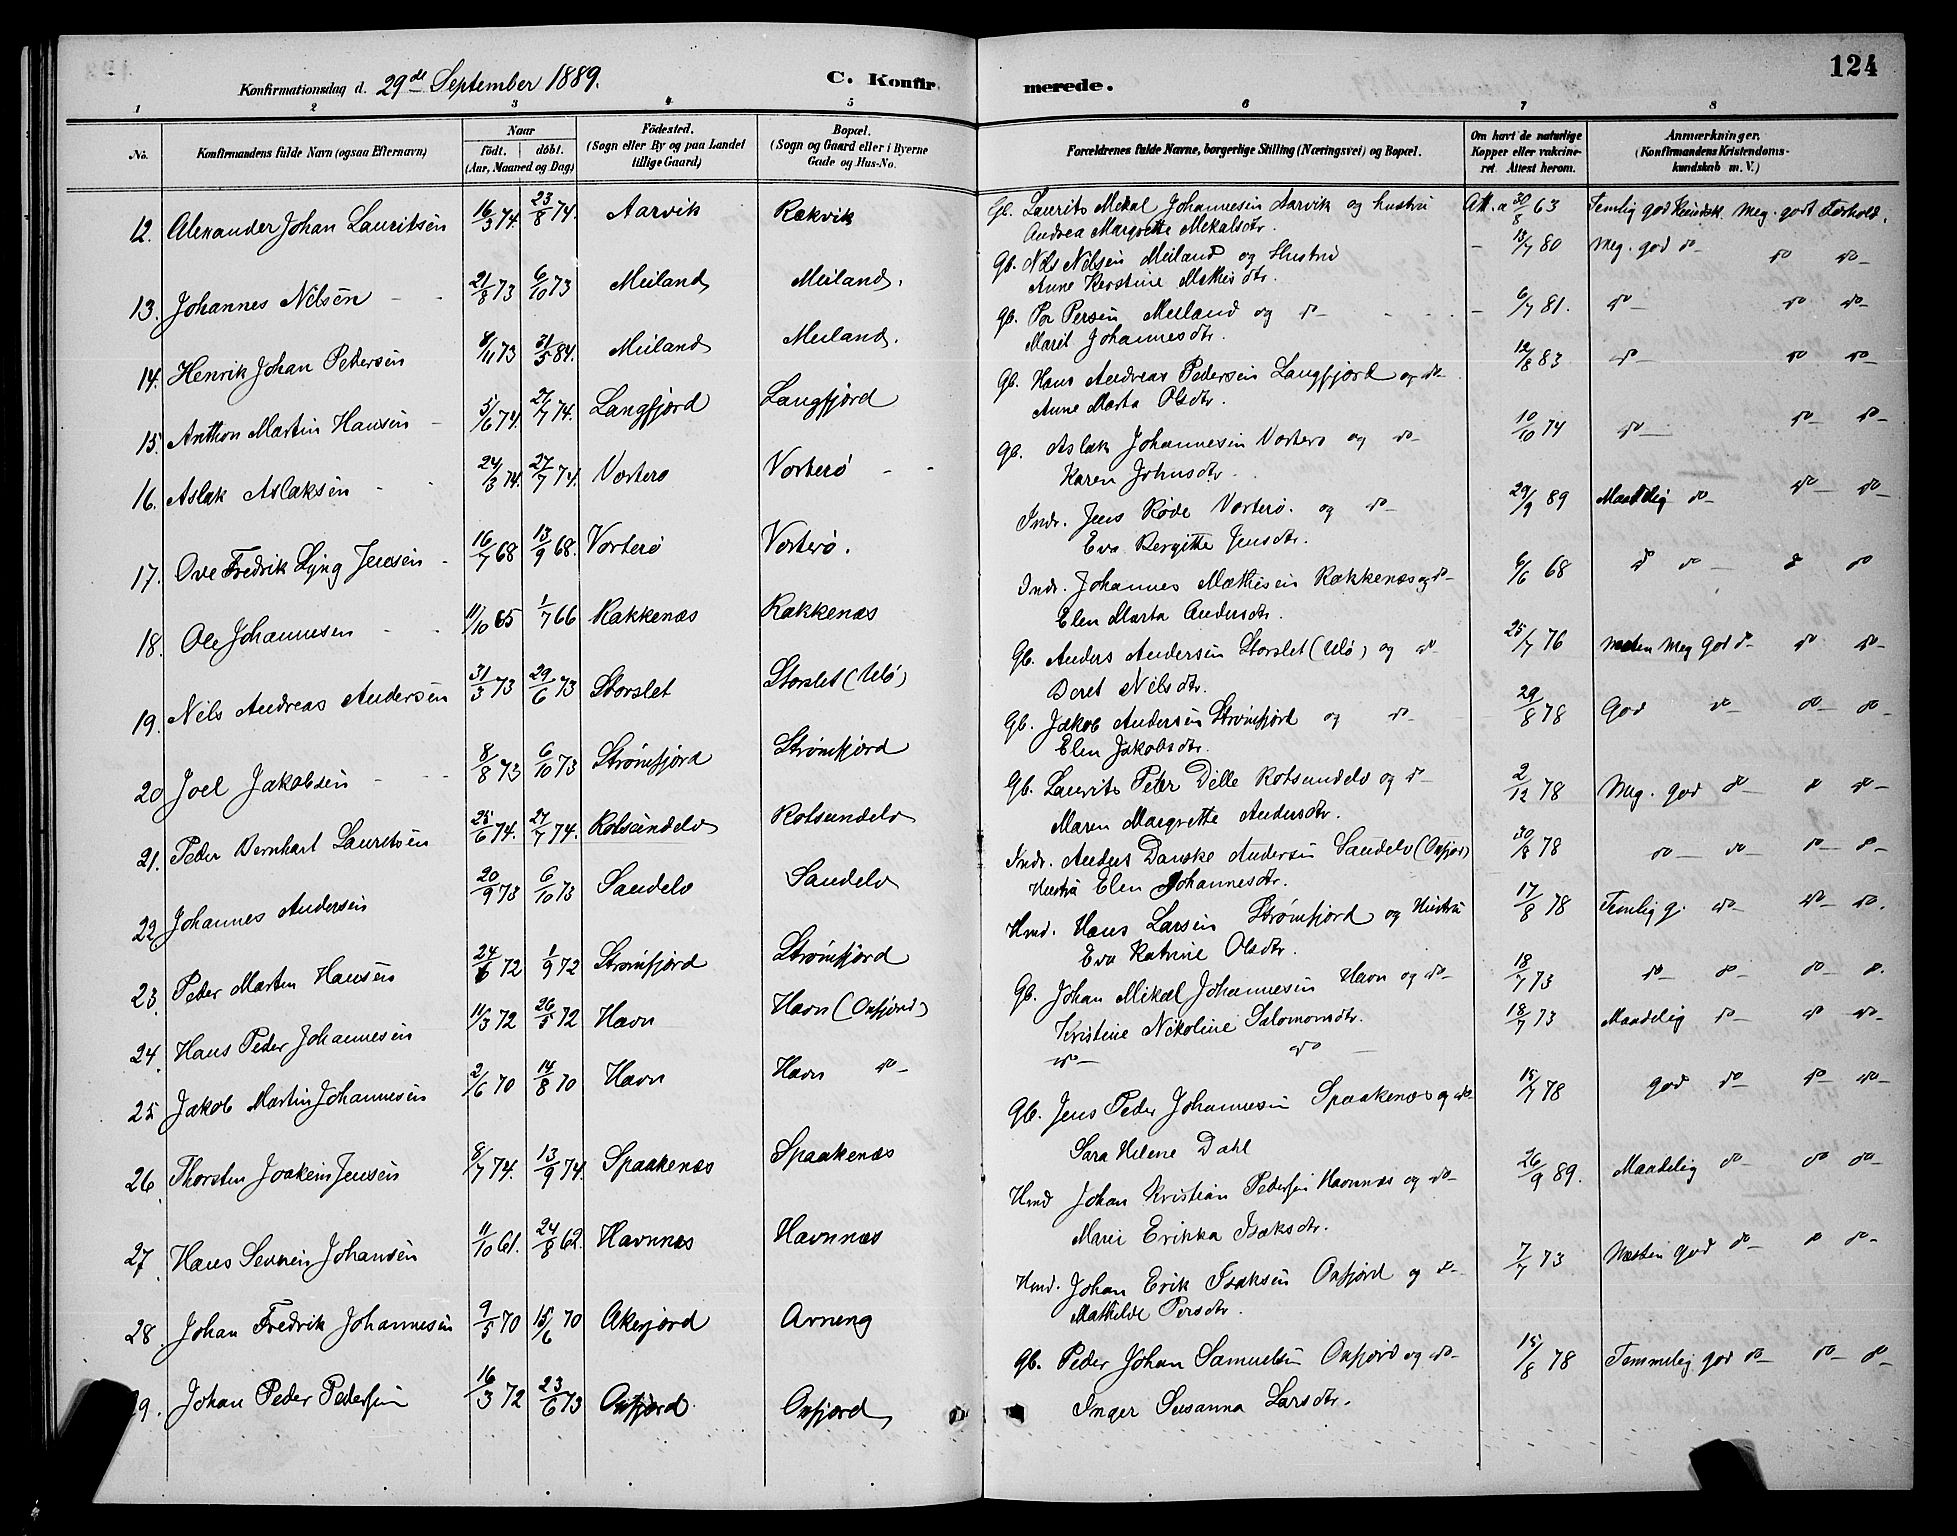 Konfirmationsdag d. 29de September 1889. C. Konfirmerede. 124
1 2 3 4 5 6 7 8
No. Konfirmandens fulde Navn (ogsaa Efternavn) Naar født. døbt. (Aar, Maaned og Dag) Födested. (Sogn eller By og paa Landet tillige Gaard) Bopæl. (Sogn og Gaard eller i Byerne Gade og Hus-No. Forældrenes fulde Navne, borgerlige Stilling (Næringsvei) og Bopæl. Om havt de naturlige Kopper eller vakcineret. Attest herom. Anmærkninger. (Konfirmandens Kristendomskundskab m. V.)
12. Alexander Johan Lauritsen 16/3 74. 23/8 74. Aarvik Rækvik Gb. Laurits Mekal Johannesen Aarvik og hustru Att. a 30/8 63 Temlig god Kundsk. Meg. godt Forhold.
Andrea Margrethe Mekalsdtr.
13. Johannes Nilsen 21/8 73 6/10 73 Meiland Meiland. Gb. Nils Nilsen Meiland og Hustru - 13/7 80 Meg. god do do do
Anne Kerstine Mathisdtr.
14. Henrik Johan Pedersen 8/11 73 31/5 84. Meiland Meiland. Gb. Per Persen Meiland og do - 6/7 81. do do do
Marit Johannesdtr.
15. Anthon Martin Hansen 5/6 74. 27/7 74. Langfjord Langfjord Gb. Hans Andreas Pedersen Langfjord og do 12/8 83 do do do
Anne Marta Olsdtr.
16. Aslak Aslaksen 24/3 74. 27/7 74. Vorterø Vorterø Gb. Aslak Johannesen Vorterø og do 10/10 74 do do do
Karen Johnsdtr.
17. Ove Fredrik Lyng Jensen 16/7 68 13/9 68. Vorterø Vorterø. Indr. Jens Røde Vorterø. og do 29/9 89 Maadelig do do do
Eva Bergitte Jensdtr.
18. Ole Johannesen 11/10 65 1/7 66 Rakkenæs Rakkenæs Indr. Johannes Mathisen Rakkenæs og do 6/6 68 do do do do
Elen Marta Andersdtr.
19. Nils Andreas Andersen 31/3 73 29/6 73 Storslet Storslet (Ulø) Gb. Anders Andersen Storslet (Ulø) og do 25/7 76 Næsten Meg god do do do
Beret Nilsdtr.
20 Joel Jakobsen 8/8 73 6/10 73 Strømfjord Strømfjord Gb. Jakob Andersen Strømfjord og do 29/8 78 God do do do
Elen Jakobsdtr.
21. Peder Bernhart Lauritsen 25/6 74. 27/7 74. Rotsundelv Rotsundelv Gb. Laurits Peter Dille Rotsundelv og do 2/12 78 Meg. god do do do
Maren Margrethe Andersdtr.
22 Johannes Andersen 20/9 73 6/10 73 Sandelv Sandelv Indr. Anders Danske Andersen Sandelv (Oxfjord) 30/8 78 do do do do
Hustru Elen Johannesdtr.
23. Peder Marten Hansen 24/6 72 1/9 72 Strømfjord Strømfjord Hmd. Hans Larsen Strømfjord og Hustru 17/8 78 Temlig g. do do do.
Eva Katrine Olsdtr.
24. Hans Peder Johannesen 11/3 72 26/5 72 Havn Havn (Oxfjord) Gb. Johan Mikal Johannesen Havn og do 18/7 73 do do do do.
Kristine Nikoline Salomonsdtr.
25 Jakob Martin Johannesen 2/6 70 14/8 70 Havn Havn do do do 18/7 73 Maadelig do do do
26 Thorsten Joakim Jensen 8/7 74. 13/9 74. Spaakenæs Spaakenæs Gb. Jens Peder Johannesen Spaakenæs og do 15/7 78 God do do do
Sara Helene Dahl
27. Hans Severin Johansen 11/10 61. 24/8 62. Havnnæs Havnnæs Hmd Johan Kristian Pedersen Havnnæs og do 26/9 89. Maadelig do do do
Marie Erikka Isaksdtr.
28. Johan Fredrik Johannesen 9/5 70 15/6 70 Akefjord Avneng Hmd. Johan Erik Isaksen Oxfjord og do 7/7 73 Næsten god do do do
Mathilde Persdtr.
29. Johan Peder Pedersen 16/3 72 23/6 73 Oxfjord Oxfjord Gb. Peder Johan Samuelsen Oxfjord og do 15/8 78 Temmelig god do do do
Inger Susanna Larsdtr.